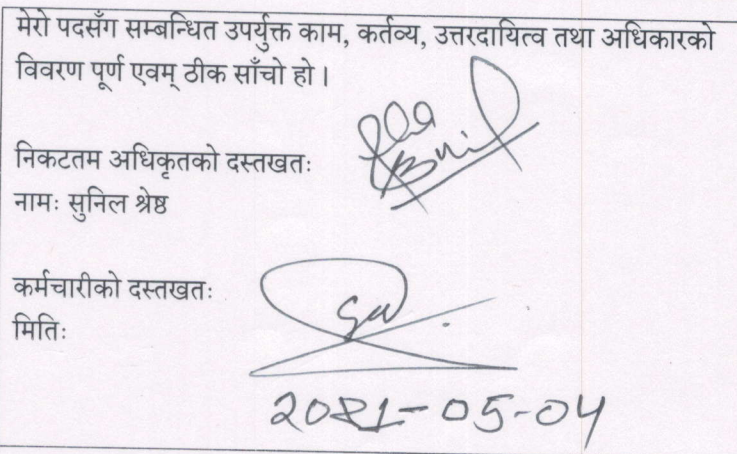 मेरो पदसँग सम्बन्धित उपर्युक्त काम, कर्तव्य, उत्तरदायित्व तथा अधिकारको
विवरण पूर्ण एवम् ठीक साँचो हो।
निकटतम अधिकृतको दस्तखतः
नामः सुनिल श्रेष्ठ
कर्मचारीको दस्तखतः
मितिः
2021-05-04